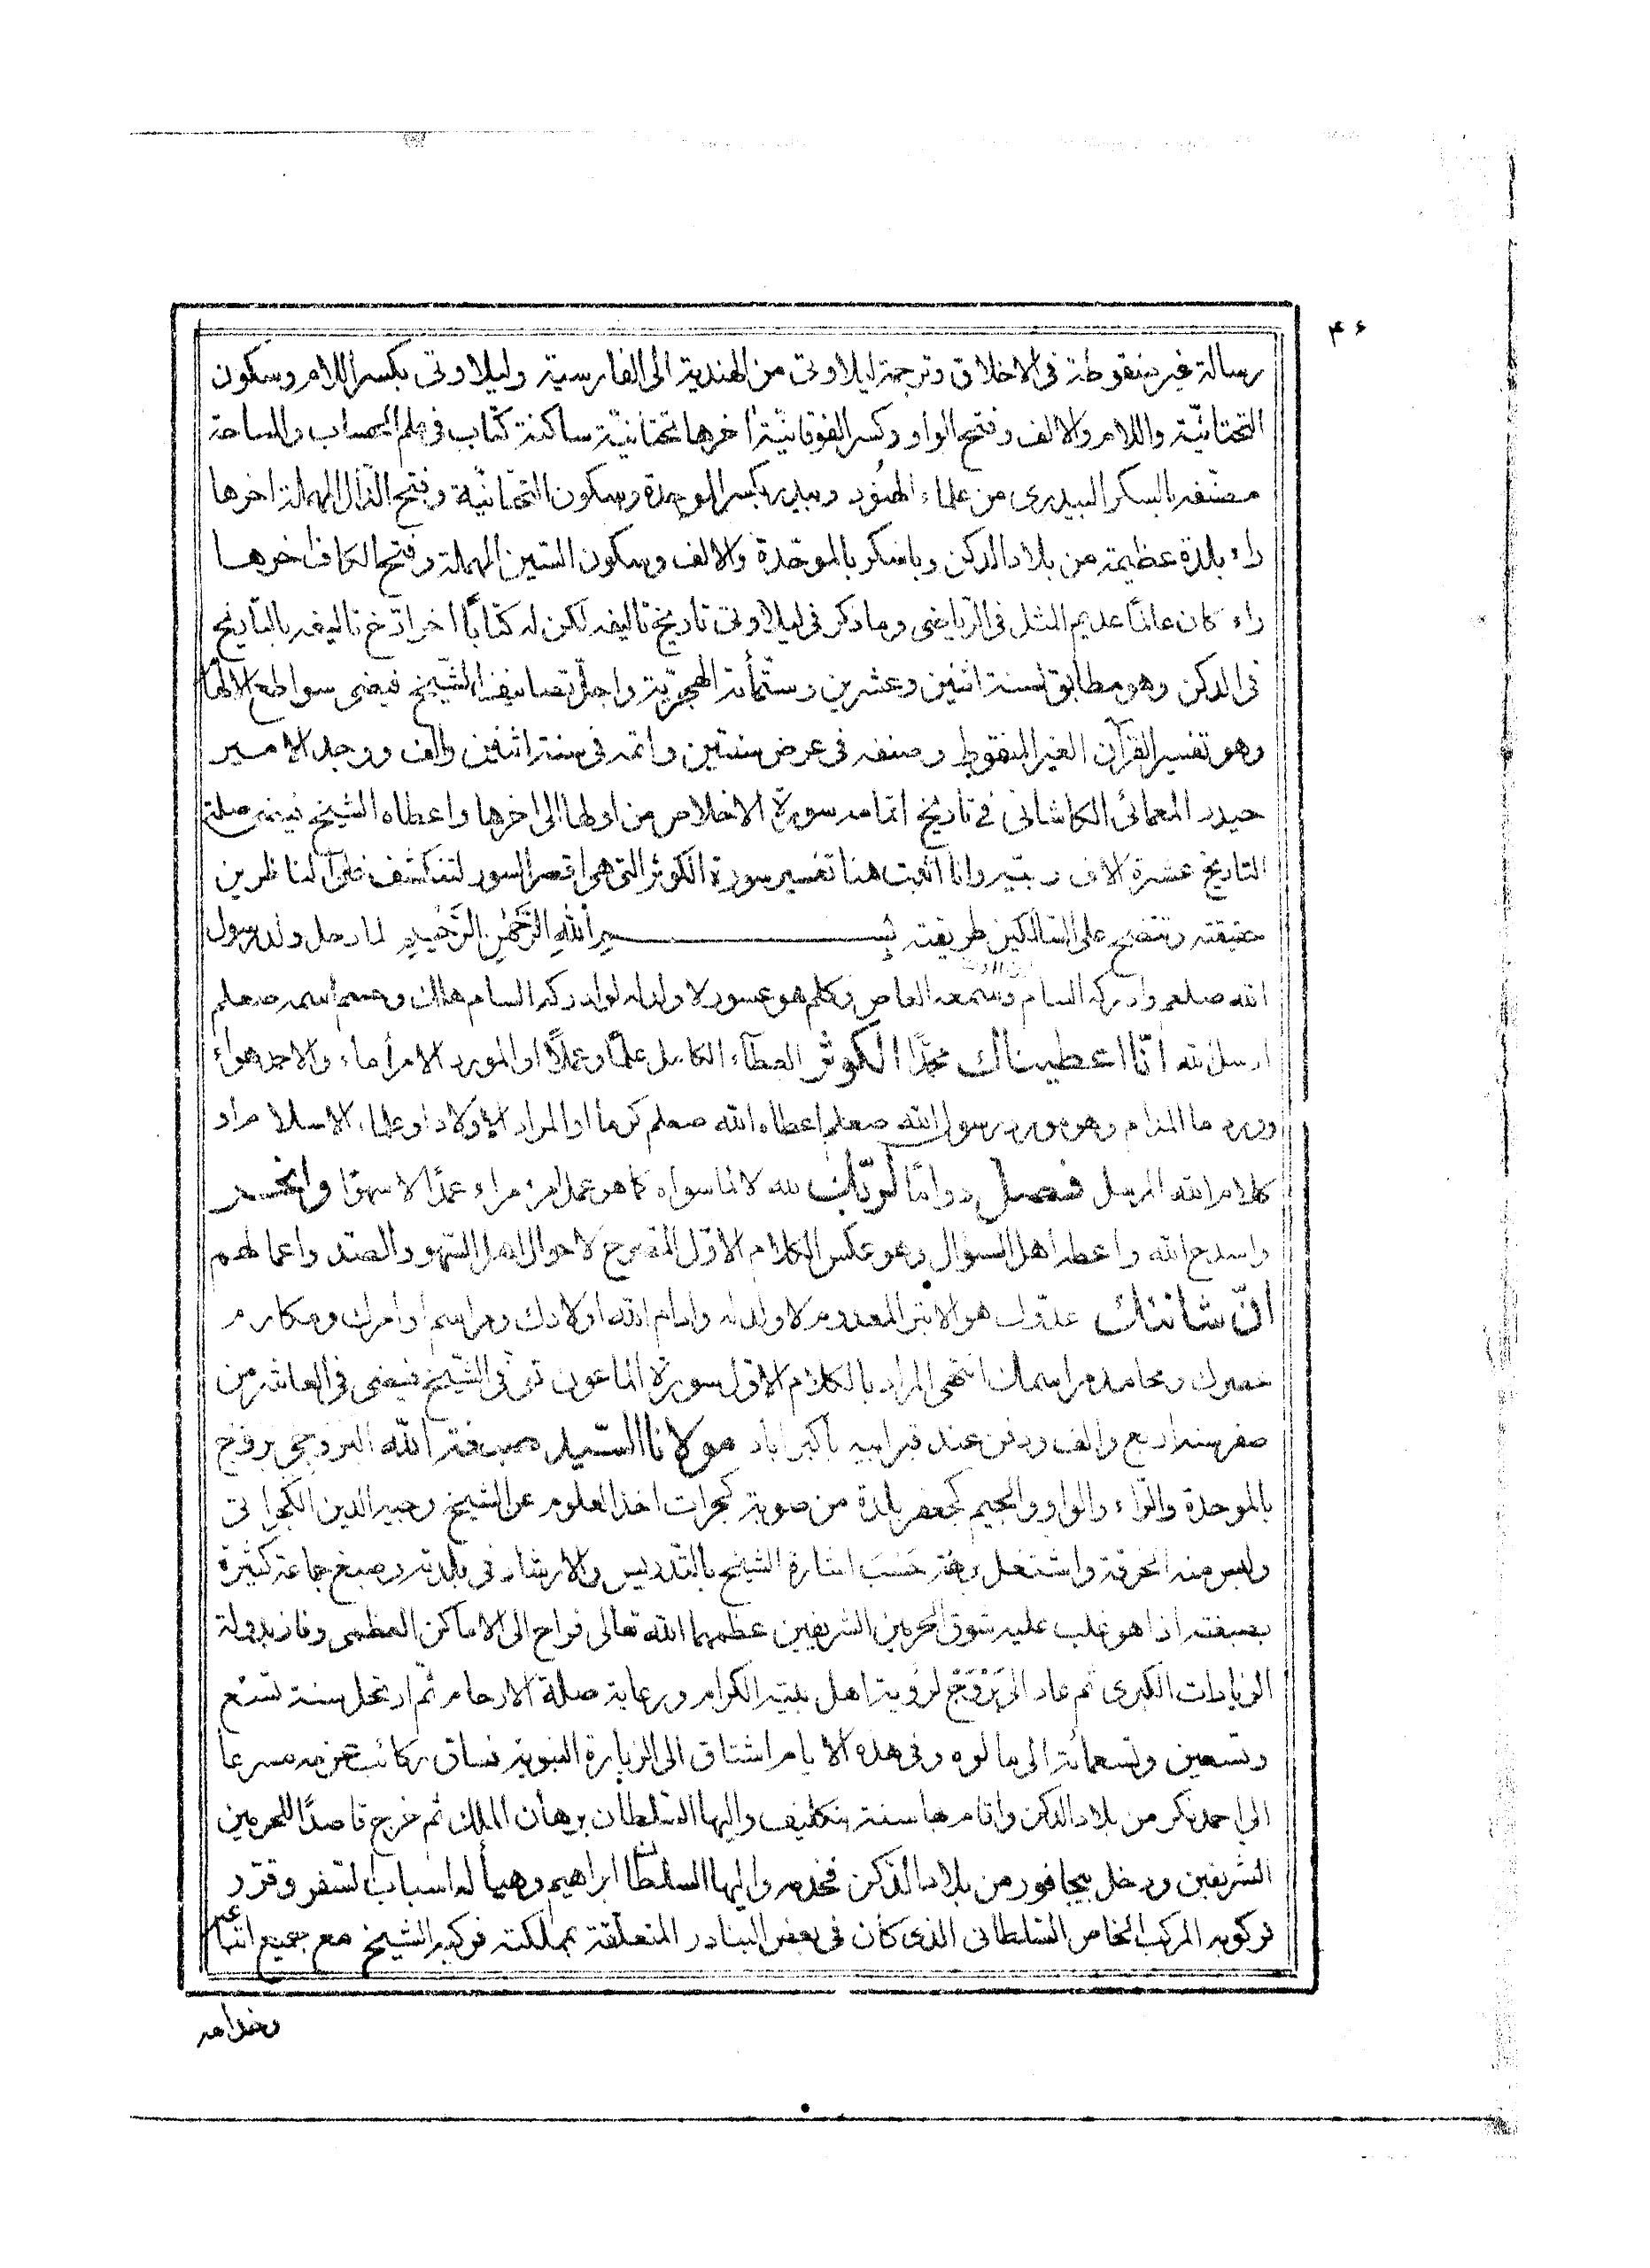 ۴۶
رسالة غير منقوطة فى الاخلاق وترجمة ليلاوتى من الهندية الى الفارسية وليلاوتى بكسر اللام وسكون
التحتانيّة واللام والالف وفتح الواو وكسر الفوقانيّة اخرها تحتانيّة ساكنة كتاب فى علم الحساب والمساحة
مصنّفه باسكر البيدرى من علماء الهنود وبيدر بكسر الموحدة وسكون التحتانيّة وفتح الدّال المهملة اخرها
راء بلدة عظيمة من بلاد الدكن وباسكر بالموحّدة والالف وسكون السّين المهملة وفتح الكاف اخرها
راء كان عالمًا عديم المثل فى الرّياضى وما ذكر فى ليلاوتى تاريخ تاليفه لكن له كتابًا اخر ارّخ تاليفه بالتاريخ
فى الدكن وهو مطابق لسنة اثنين وعشرين وستّمائة الهجريّة واجلّ تصانيف الشّيخ فيضى سواطع الالهام
وهو تفسير القرآن الغير المنقوط وصنفه فى عرض سنتين واتمه فى سنة اثنين والف ووجد الامير
حيدر المعمائى الكاشانى فى تاريخ اتمامه سورة الاخلاص من اولها الى اخرها واعطاه الشيخ فيضى صلة
التاريخ عشرة الاف ربيّة وانا اثبت هنا تفسير سورة الكوثر التى هى اقصر السور لتنكشف على الناظرين
حقيقته وتتضح على السّالكين طريقته بِسـمِ اللهِ الرَّحْمٰنِ الرَّحِيْمِ لما رحل ولد رسول
الله صلعم وادركه السام وسمعه العاص وكلم هو عسور لا ولد له لو ادركه السام هلك وحسم اسمه صعلم
ارسل الله انّا اعطيناك محمّدًا الكوثر العطآء الكامل علمًا وعملًا او المورد الامرأ ماء والاحمد هواء
وورد ما المدام وهو مورد رسول الله صعلم اعطاه الله صعلم كرمًا او المراد الاولاد او علماء الاسلام او
كلام الله المرسل فصل دوامًا لربّك لله لا لما سواه كما هو عمل امرء مراء عمدًا لا سهوًا وانحر
واسدح الله واعط اهل السوال وهو عكس الكلام الاوّل المصرح لاحوال اهل السّهو والصّد واعمالهم
انّ شانئك عدوّك هو الابتر المعدوم لا ولد له وادام الله اولادك ومراسم اوامرك ومكارم
عصرك ومحامد مراسمك انتهى المراد بالكلام الاوّل سورة الماعون توفّى الشّيخ فيضى فى العاشر من
صفر سنة اربع والف ودفن عند قبر ابيه باكبراباد مولانا السّيد صبغة الله البروجى بروج
بالموحدة والرّاء والواو والجيم كجعفر بلدة من صوبة كجرات اخذ العلوم عن الشيخ وجيه الدين الكجراتى
ولبس منه الخرقة واشتغل برهة حَسَبَ اشارة الشيخ بالتّدريس والارشاد فى بلدته وصبغ جماعة كثيرة
بصبغته اذا هو غلب عليه شوق الحرمين الشريفين عظمهما الله تعالى فراح الى الاماكن العظمى وفاز بدولة
الزيارات الكبرى ثم عاد الى بَرْوَجْ لرؤية اهل بيته الكرام ورعاية صلة الارحام ثمّ ارتحل سنة تسع
وتسعين وتسعمائة الى مالوه وفى هذه الايام اشتاق الى الزيارة النبوية فساق ركائب عزمه مسرعا
الى احمدنكر من بلاد الدكن واقام بها سنة بتكليف واليها السّلطان برهان الملك ثم خرج قاصدًا للحرمين
الشريفين ودخل بيجافور من بلاد الدّكن فخدمه واليها السلطان ابراهيم وهيأ له اسباب السّفر وقرّر
لركوبه المركب الخاص السّلطانى الذى كان فى بعض البنادر المتعلّقة بمملكته فركبه الشيخ مع جميع اتباعه
وخدامه